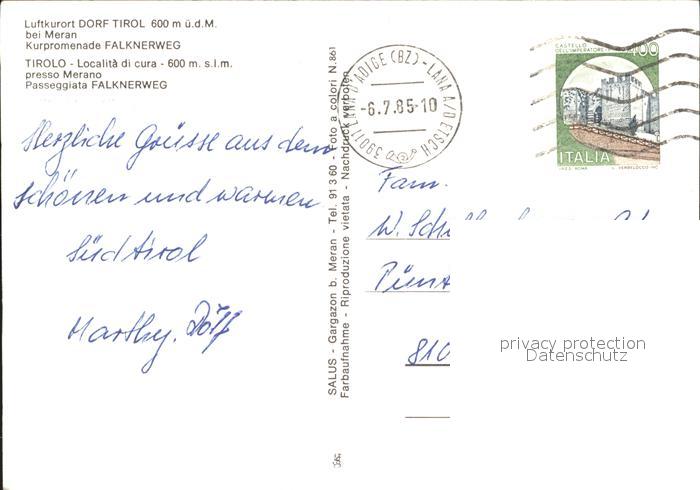 Luftkurort DORF TIROL 600 m ü.d.M.
bei Meran
Kurpromenade FALKNERWEG
TIROLO - Località di cura - 600 m. s.l.m.
presso Merano
Passeggiata FALKNERWEG
Herzliche Grüsse aus dem
schönen und warmen
Südtirol
Marthy. Rolf
SALUS - Gargazon b. Meran - Tel. 91 3 60 - Foto a colori N. 861
Farbaufnahme - Riproduzione vietata - Nachdruck verboten
39011 LANA D'ADIGE (BZ) - LANA A/D ETSCH
-6.7.85-10
CASTELLO
DELL'IMPERATORE
400
ITALIA
I.P.Z.S. ROMA
Fam.
W. Sch
Pünt
810
privacy protection
Datenschutz